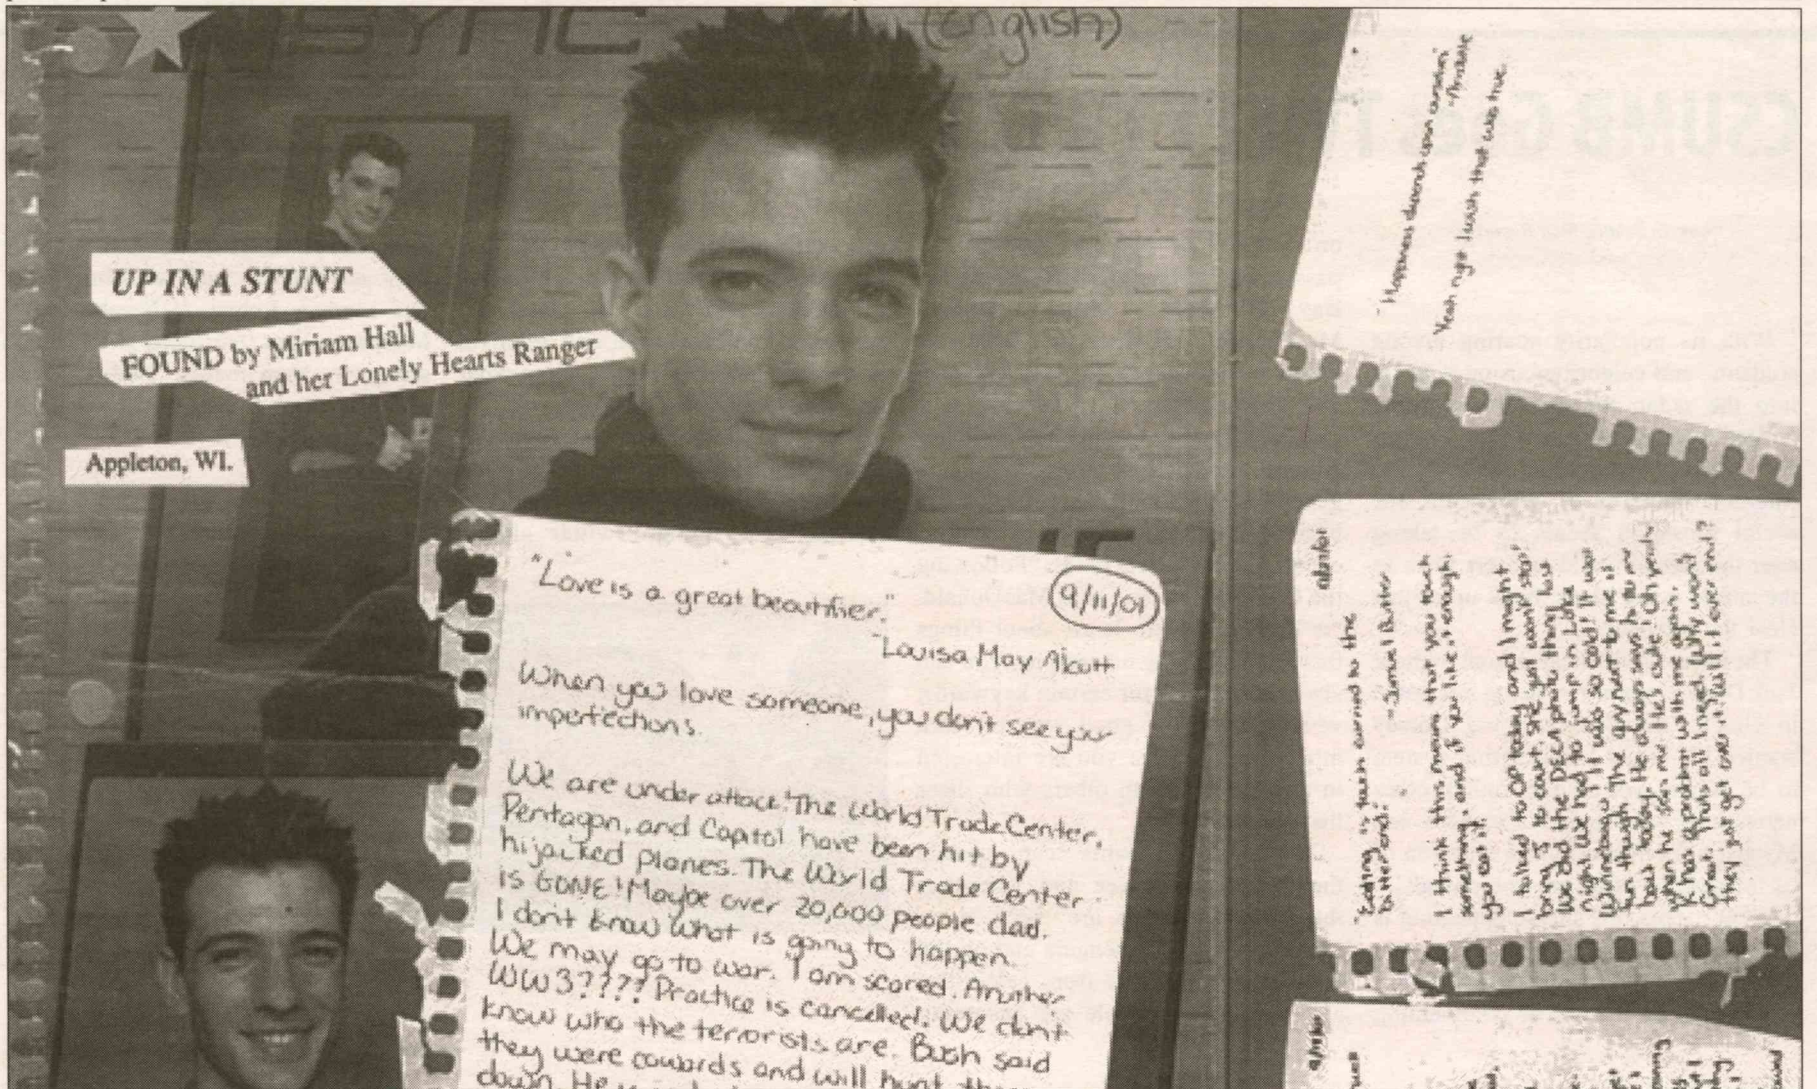 NSYNC
(English)
UP IN A STUNT
FOUND by Miriam Hall
and her Lonely Hearts Ranger
Appleton, WI.
"Love is a great beautifier."
9/11/01
-Louisa May Alcott
When you love someone, you don't see your
imperfections.
We are under attack! The World Trade Center,
Pentagon, and Capitol have been hit by
hijacked planes. The World Trade Center
is GONE! Maybe over 20,000 people dead.
I don't know what is going to happen.
We may go to war. I am scared. Another
WW3???? Practice is cancelled. We don't
know who the terrorists are. Bush said
they were cowards and will hunt them
down. He
"Happiness depends upon ourselves"
-Aristotle
Yeah right I wish that was true.
"Eating is touch carried to the
bitter end."
-Samuel Butler
I think this means that you touch
something, and if you like it enough
you eat it.
I talked to OP today and I might
bring J to court. She just won't stop!
We did the DECA photo thing last
night. We had to jump in Lake
Winnebago. It was so cold! It was
fun though. The guy next to me is
bout today. He always says hi to me
when he sees me. He's cute! Oh yeah,
K has a problem with me again.
Great. Thats all I need. Why won't
they just get over it. Will it ever end?